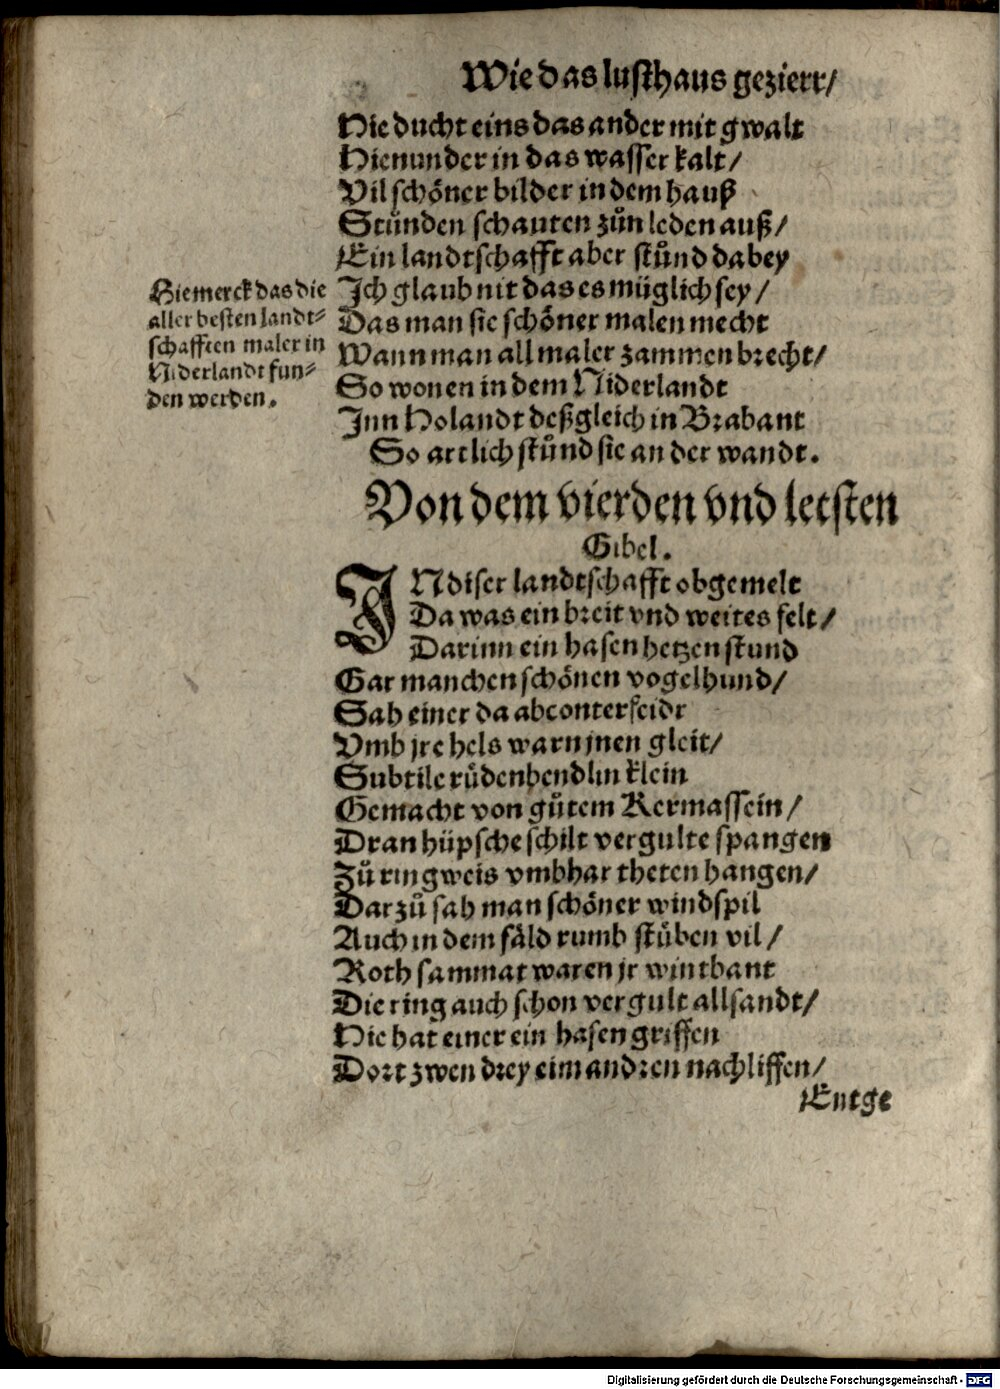 Wie das lusthaus geziert/
Hie ducht eins das ander mit gwalt
Hienunder in das wasser kalt/
Vil schöner bilder in dem hauß
Stůnden schauten zůn leden auß/
Ein landtschafft aber stůnd dabey
Ich glaub nit das es müglich sey/
Das man sie schöner malen mecht
Wann man all maler zammen brecht/
So wonen in dem Niderlandt
Inn Holandt deßgleich in Brabant
So artlich stůnd sie an der wandt.
Hie merck das die
aller besten landt-
schafften maler in
Niderlandt fun-
den werden.
Von dem vierden vnd letsten
Gibel.
IN diser landtschafft obgemelt
Da was ein breit vnd weites felt/
Darinn ein hasen hetzen stund
Gar manchen schönen vogelhund/
Sah einer da abconterfeidt
Vmb jre hels warn jnen gleit/
Subtile rüdenbendlin klein
Gemacht von gůtem Kermassein/
Dran hüpsche schilt vergulte spangen
Zů ringweis vmbhar theten hangen/
Darzů sah man schöner windspil
Auch in dem fäld rumb stüben vil/
Roth sammat waren jr wintbant
Die ring auch schon vergult allsandt/
Hie hat einer ein hasen griffen
Dort zwen drey eim andren nachliffen/
Entge
Digitalisierung gefördert durch die Deutsche Forschungsgemeinschaft - DFG